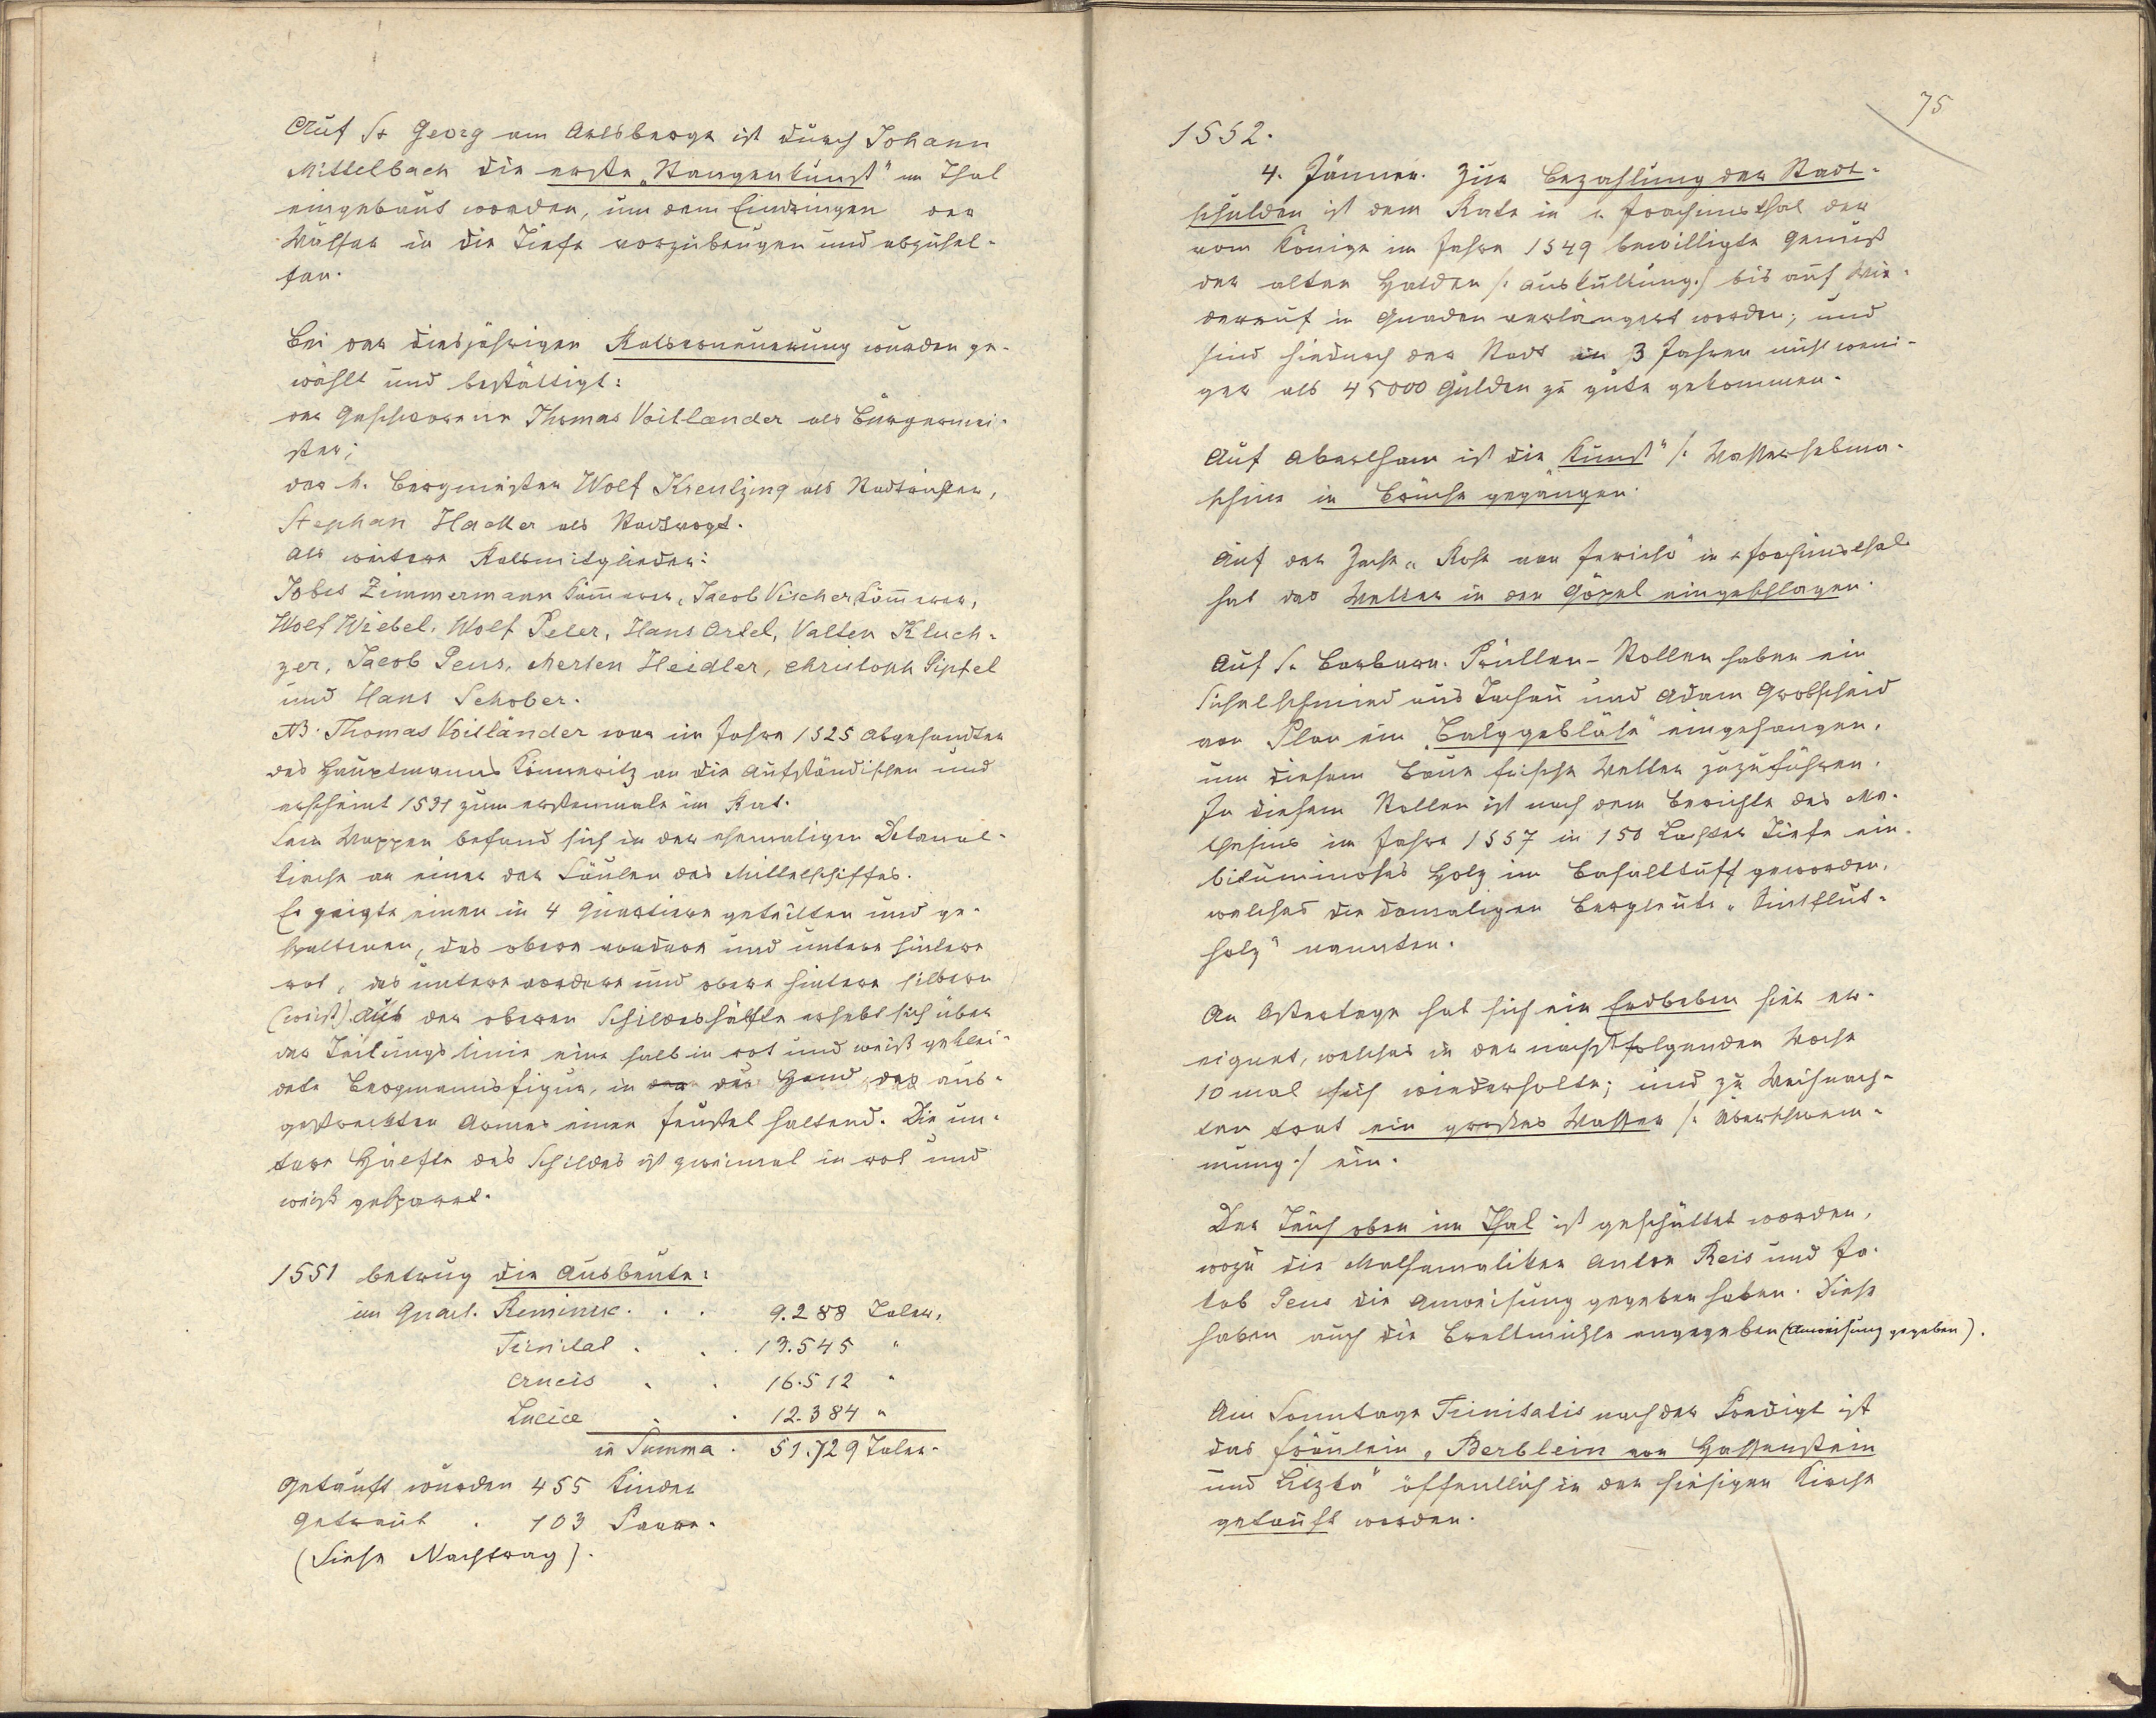 Auf St Georg am Arlsberge ist durch Johann
Mittelbach die erste „Stangenkunst" im Thal
eingebaut worden, um dem Eindringen der
Wässer in die Tiefe vorzubeugen und abzuhel-
fen.
Bei der diesjährigen Ratserneuerung wurden ge-
wählt und bestättigt:
der Geschworene Thomas Voitlænder als Bürgermei-
ster;
der k. Bergmeister Wolf Kreutzing als Stadtrichter,
Stephan Hacker als Stadtvogt.
Als weitere Ratsmitglieder:
Jobes Zimmermann Kämmerer, Jacob Vischer Kämmerer,
Wolf Wiebel, Wolf Peler, Hans Ortel, Valten Kluch-
zer, Jacob Pens, Merten Heidler, Christoph Pipfel
und Hans Schober.
NB. Thomas Voitländer war im Jahre 1525 Abgesandter
des Hauptmanns Könneritz an die Aufständischen und
erscheint 1531 zum erstenmale im Rat.
Sein Wappen befand sich in der ehemaligen Dekanal-
kirche an einer der Säulen des Mittelschiffes.
Er zeigte einen in 4 Quartiere geteilten und ge-
spaltenen, das obere vordere und untere hintere
rot, das untere vordere und obere hintere silbern
(weiß). Aus der oberen Schildeshälfte erhebt sich über
der Teilungslinie eine halb in rot und weiß geklei-
dete Bergmannsfigur, in der Hand des aus-
gestreckten Armes einen Feustel haltend. Die un-
tere Hälfte des Schildes ist zweimal in rot und
weiß gesparrt.
1551 betrug die Ausbeute:
im Quart. Reminisc. . . 9.288 Taler,
Trinitat . . . 13.545 "
Crucis . . 16.512 "
Luciæ . . 12.384 "
in Summa . 51.729 Taler.
Getauft wurden 455 Kinder
Getraut . 103 Paare.
(Siehe Nachtrag).
75
1552.
4. Jänner. Zur Bezahlung der Stadt-
schulden ist dem Rate in St. Joachimsthal der
vom Könige im Jahre 1549 bewilligte Genuß
der alten Halden /: Auskuttung :/ bis auf Wie-
derruf in Gnaden verlängert worden; und
sind hiedurch der Stadt in 3 Jahren nicht weni-
ger als 45000 Gulden zu gute gekommen.
Auf Abertham ist die „Kunst" /: Wasserhebma-
schine in Brüche gegangen.
Auf der Zeche „Rose von Jericho" in St. Joachimsthal
hat das Wetter in den Göpel eingeschlagen.
Auf St. Barbara. Prüllen-Stollen haben ein
Sichelschmied aus Tachau und Adam Grobschmid
von Plan ein „Balggebläse" eingehangen,
um diesem Baue frische Wetter zuzuführen.
In diesem Stollen ist nach dem Berichte des Ma-
thesius im Jahre 1557 in 150 Lachter Tiefe ein
bituminöses Holz im Basalttuff geworden,
welches die damaligen Bergleute „Sintflut-
holz" nannten.
Am Ostertage hat sich ein Erdbeben hier er-
eignet, welches in der nächstfolgenden Woche
10 mal sich wiederholte; und zu Weihnach-
ten trat ein großes Wasser /: Überschwem-
mung :/ ein.
Der Teich oben im Thal ist geschüttet worden,
wozu die Mathematiker Anton Reis und Ja-
kob Pens die Anweisung gegeben haben. Diese
haben auch die Brettmühle angegeben (Anweisung gegeben).
Am Sonntage Trinitatis nach der Predigt ist
das Fräulein „Berblein von Hassenstein
und Litzka" öffentlich in der hiesigen Kirche
getauft worden.